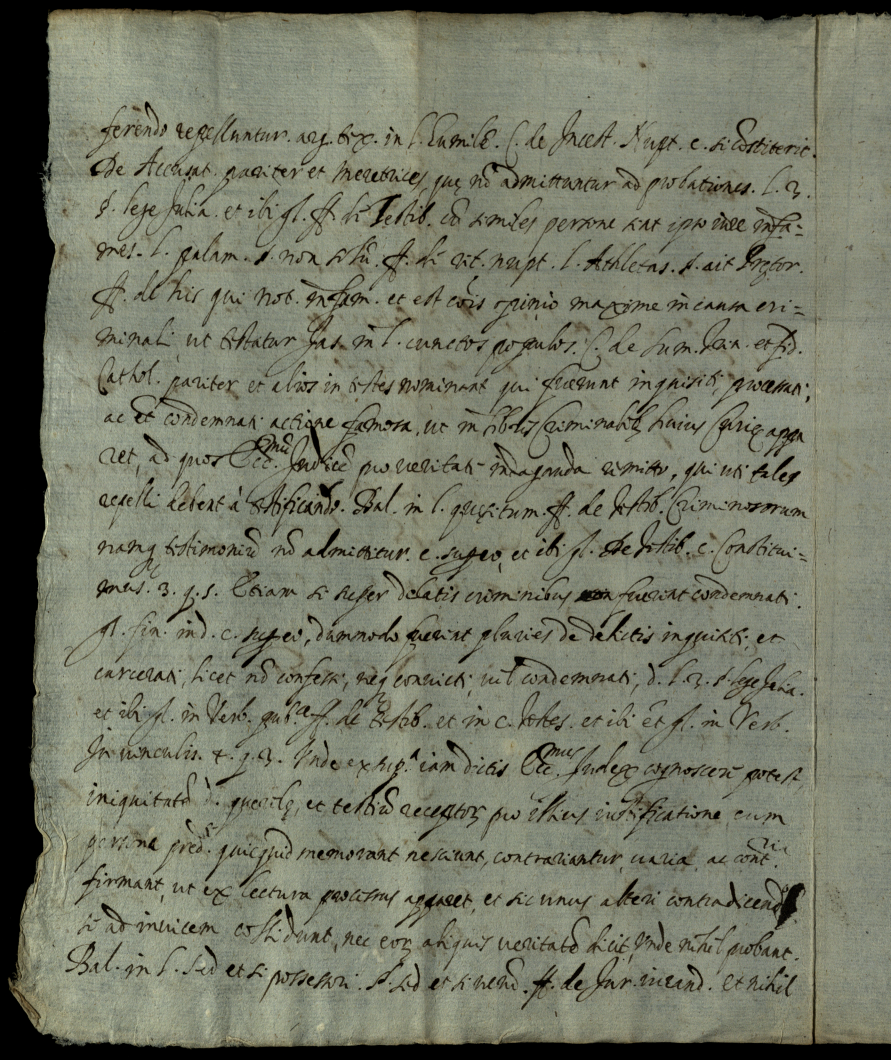 ferendo repelluntur. arg. tex. in l. humilē. C. de Incest. Nupt. c. si cōstiterit.
De Accusat. pariter et meretrices, quę nō admittuntur ad probationes. l. 3.
§. lege Julia. et ibi gl. ff. de Testib. cū similes persone sint ipso iure infa=
mes. l. palam. §. non solū. ff. de rit. nupt. l. Athletas. §. ait Prętor.
ff. de his qui not. infam. et est cōis opinio maxime in causa cri=
minali, ut testatur Jas. in l. cunctos populos. C. de Sum. Trin. et fid.
Cathol. pariter et alios in testes nominant qui fuerunt inquisiti, processati,
ac et condemnati actione famosa, ut in libris Criminalib huius Curię appa
ret, ad quos Ecc.mū Judicē pro veritati indaganda remitto, qui uti tales
repelli debent à testificando. Bal. in l. quęsitum. ff. de testib. Criminosorum
namq testimoniū nō admittitur. c. super eo, et ibi gl. De testib. c. Constitui=
mus. 3. q. 5. Etiam si super delatis criminibus fuerint condemnati.
gl. fin. in d. c. super eo, dummodo fuerint pluries de delictis inquisiti, et
carcerati, licet nō confessi, neq convicti, uel condemnati, d. l. 3. §. lege Julia.
et ibi gl. in Verb. pub.ce ff. de testib. et in c. testes. et ibi ēt gl. in Verb.
In vinculis. 4. q. 3. Unde ex sup.a iam dictis Ecc.mus Judex cognoscere potest
iniquitatē d. querelę, et testiū receptoꝝ pro illius iustificatione, cum
persona pred. quicquid memorant nesciunt, contrariantur, uaria, ac cont.ria
firmant, ut ex lectura processus apparet, et sic unus alteri contradicendo
se ad invicem collidunt, nec eoꝝ aliquis ueritatē dicit, Unde nihil probant.
Bal. in l. Sed et si possessori. §. sed et si uend. ff. de Jur. iurand. et nihil